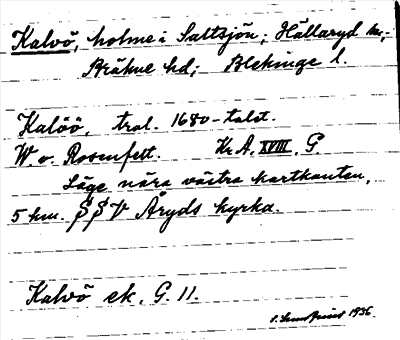 Kalvö, holme i Saltsjön; Hällaryd sn,
Bräkne hd; Blekinge l.
Kalöö, trol. 1680-talet.
W. v. Rosenfelt. Kr.A. XVIII, G
Läge nära västra kartkanten,
5 km. SSV Åryds kyrka.
Kalvö ek. G. 11.
1936